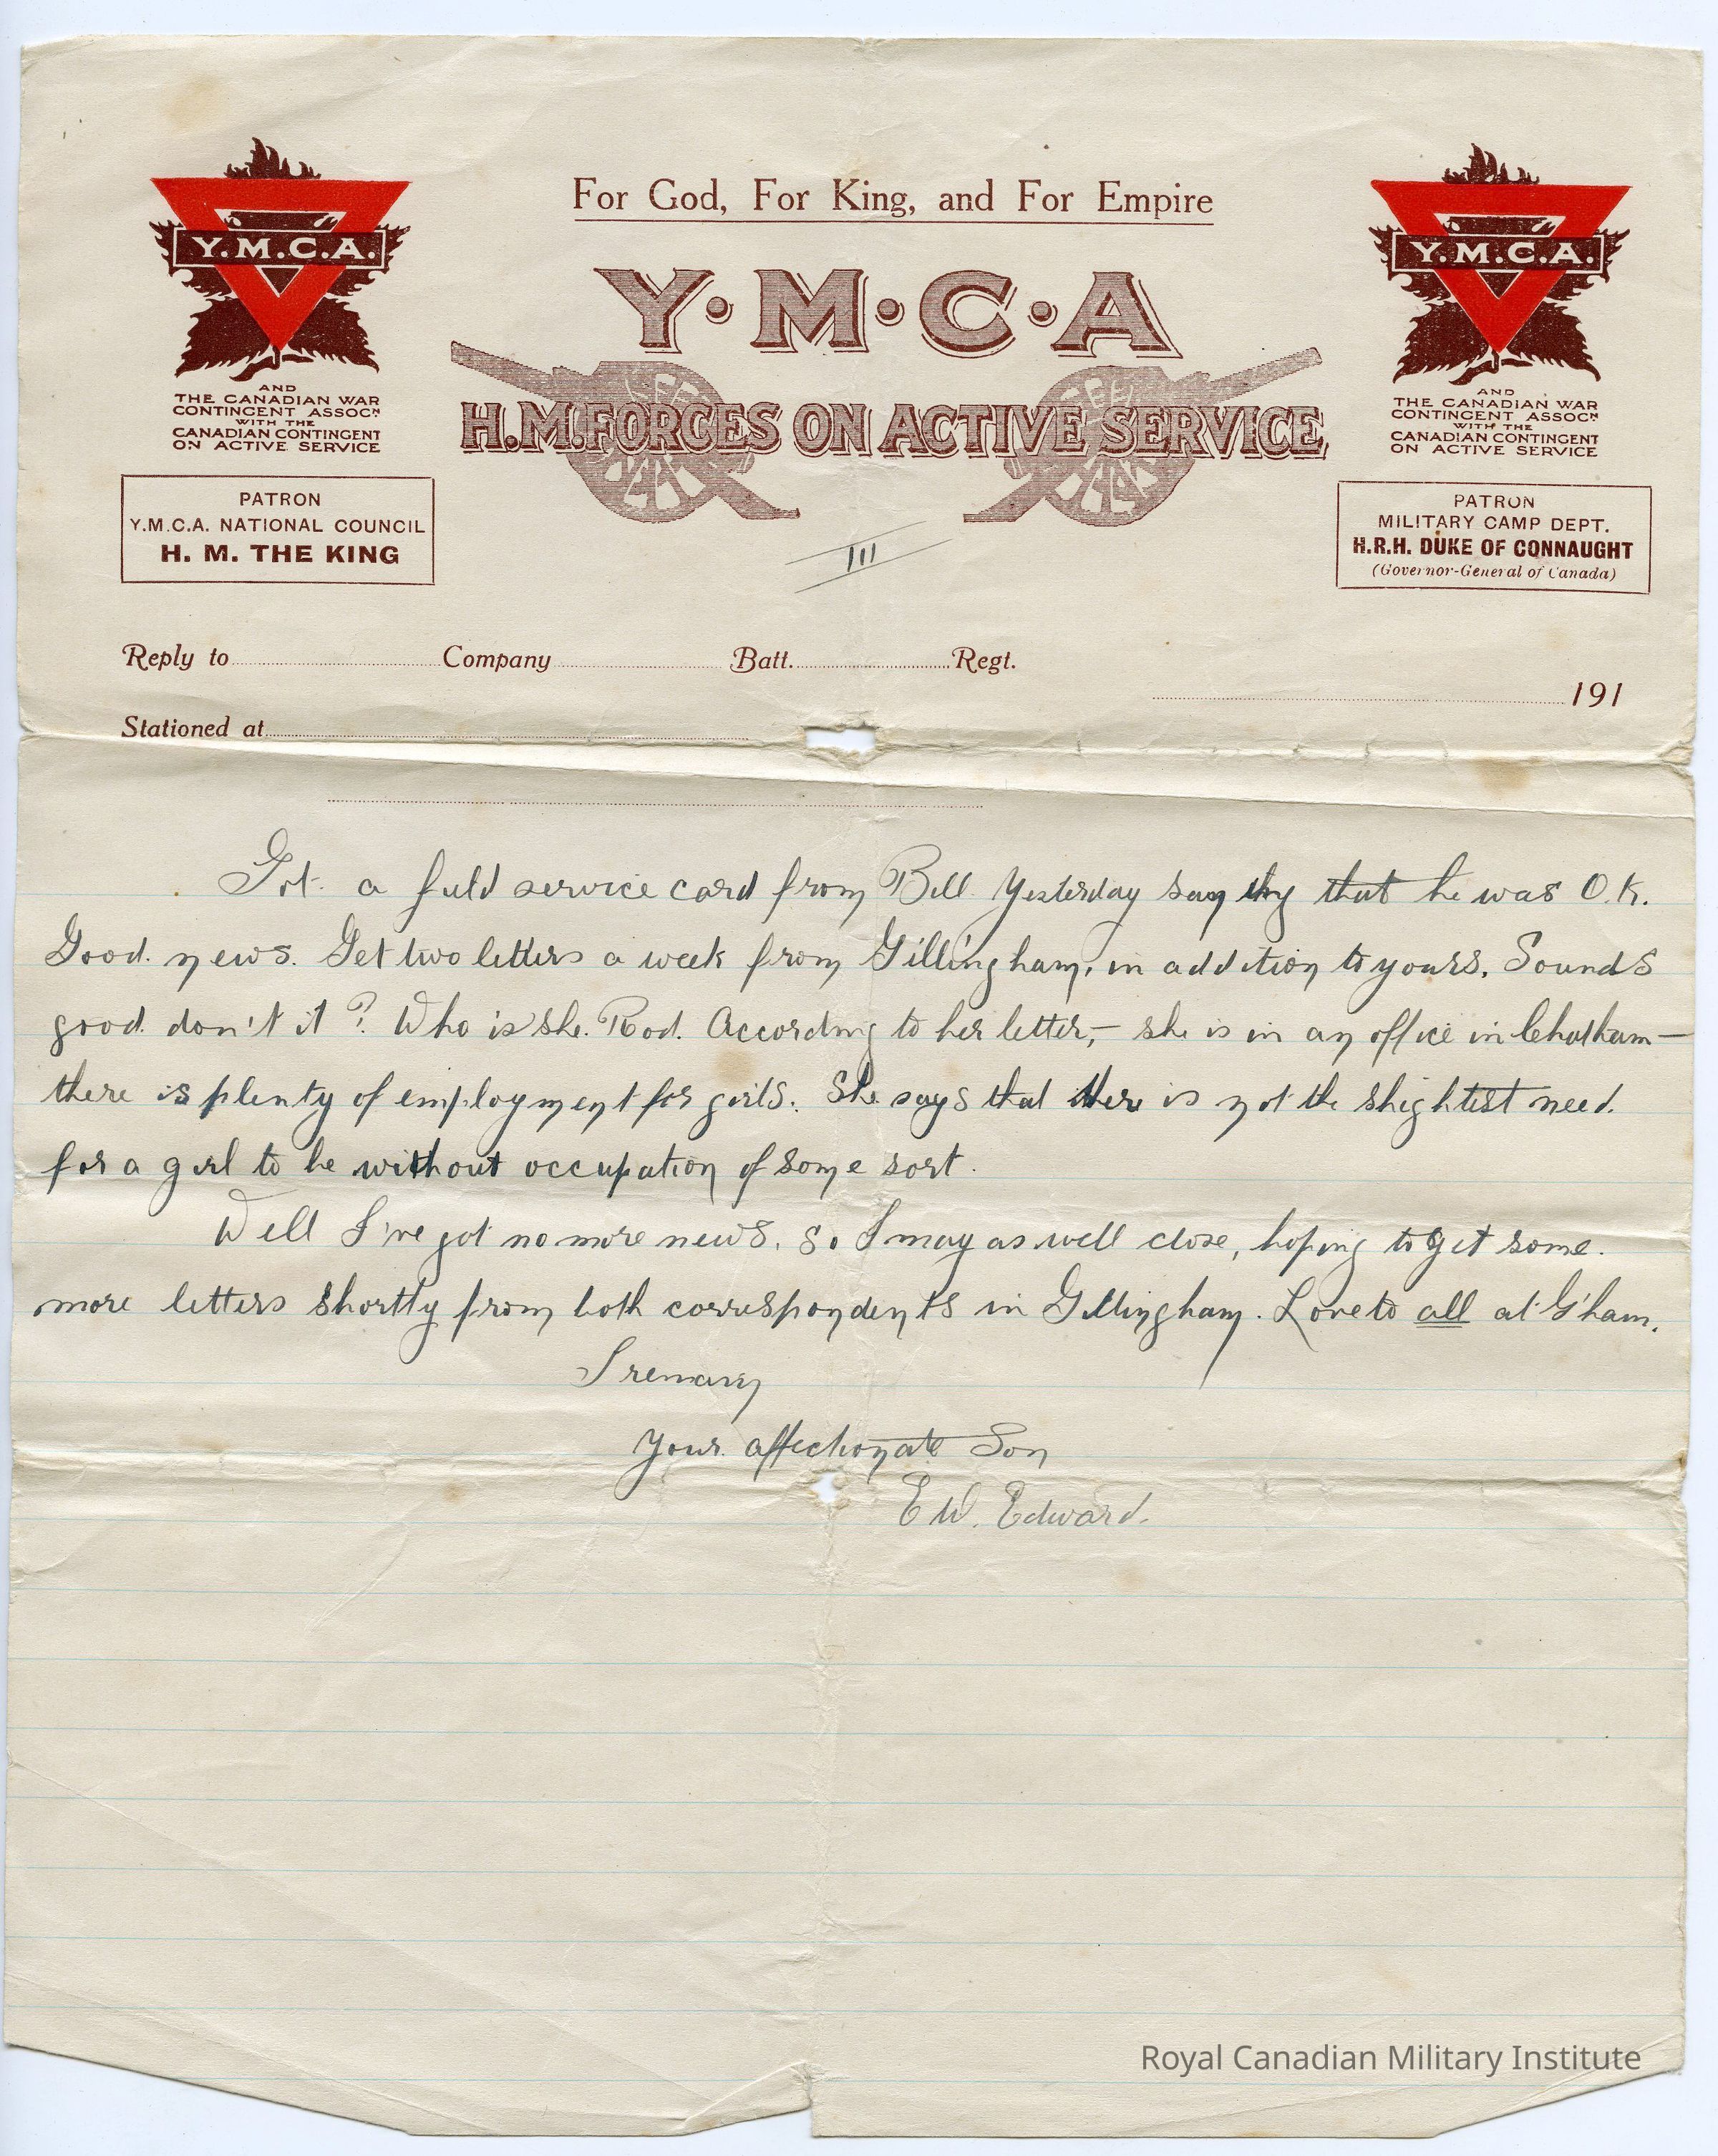 For God, For King, and For Empire
Y.M.C.A.
Y·M·C·A
Y.M.C.A.
H.M. FORCES ON ACTIVE SERVICE
AND
THE CANADIAN WAR
CONTINGENT ASSOCN
WITH THE
CANADIAN CONTINGENT
ON ACTIVE SERVICE
AND
THE CANADIAN WAR
CONTINGENT ASSOCN
WITH THE
CANADIAN CONTINGENT
ON ACTIVE SERVICE
PATRON
Y.M.C.A. NATIONAL COUNCIL
H. M. THE KING
PATRON
MILITARY CAMP DEPT.
H.R.H. DUKE OF CONNAUGHT
(Governor-General of Canada)
III
Reply to Company Batt. Regt.
191
Stationed at
Got a field service card from Bill Yesterday saying that he was O.K.
Good news. Get two letters a week from Gillingham, in addition to yours. Sounds
good don't it? Who is she. Rod. According to her letter, – she is in an office in Chatham –
there is plenty of employment for girls. She says that there is not the slightest need
for a girl to be without occupation of some sort.
Well I've got no more news. So I may as well close, hoping to get some
more letters shortly from both correspondents in Gillingham. Love to all at G'ham.
I remain
Your affectionate Son
E W. Edward.
Royal Canadian Military Institute